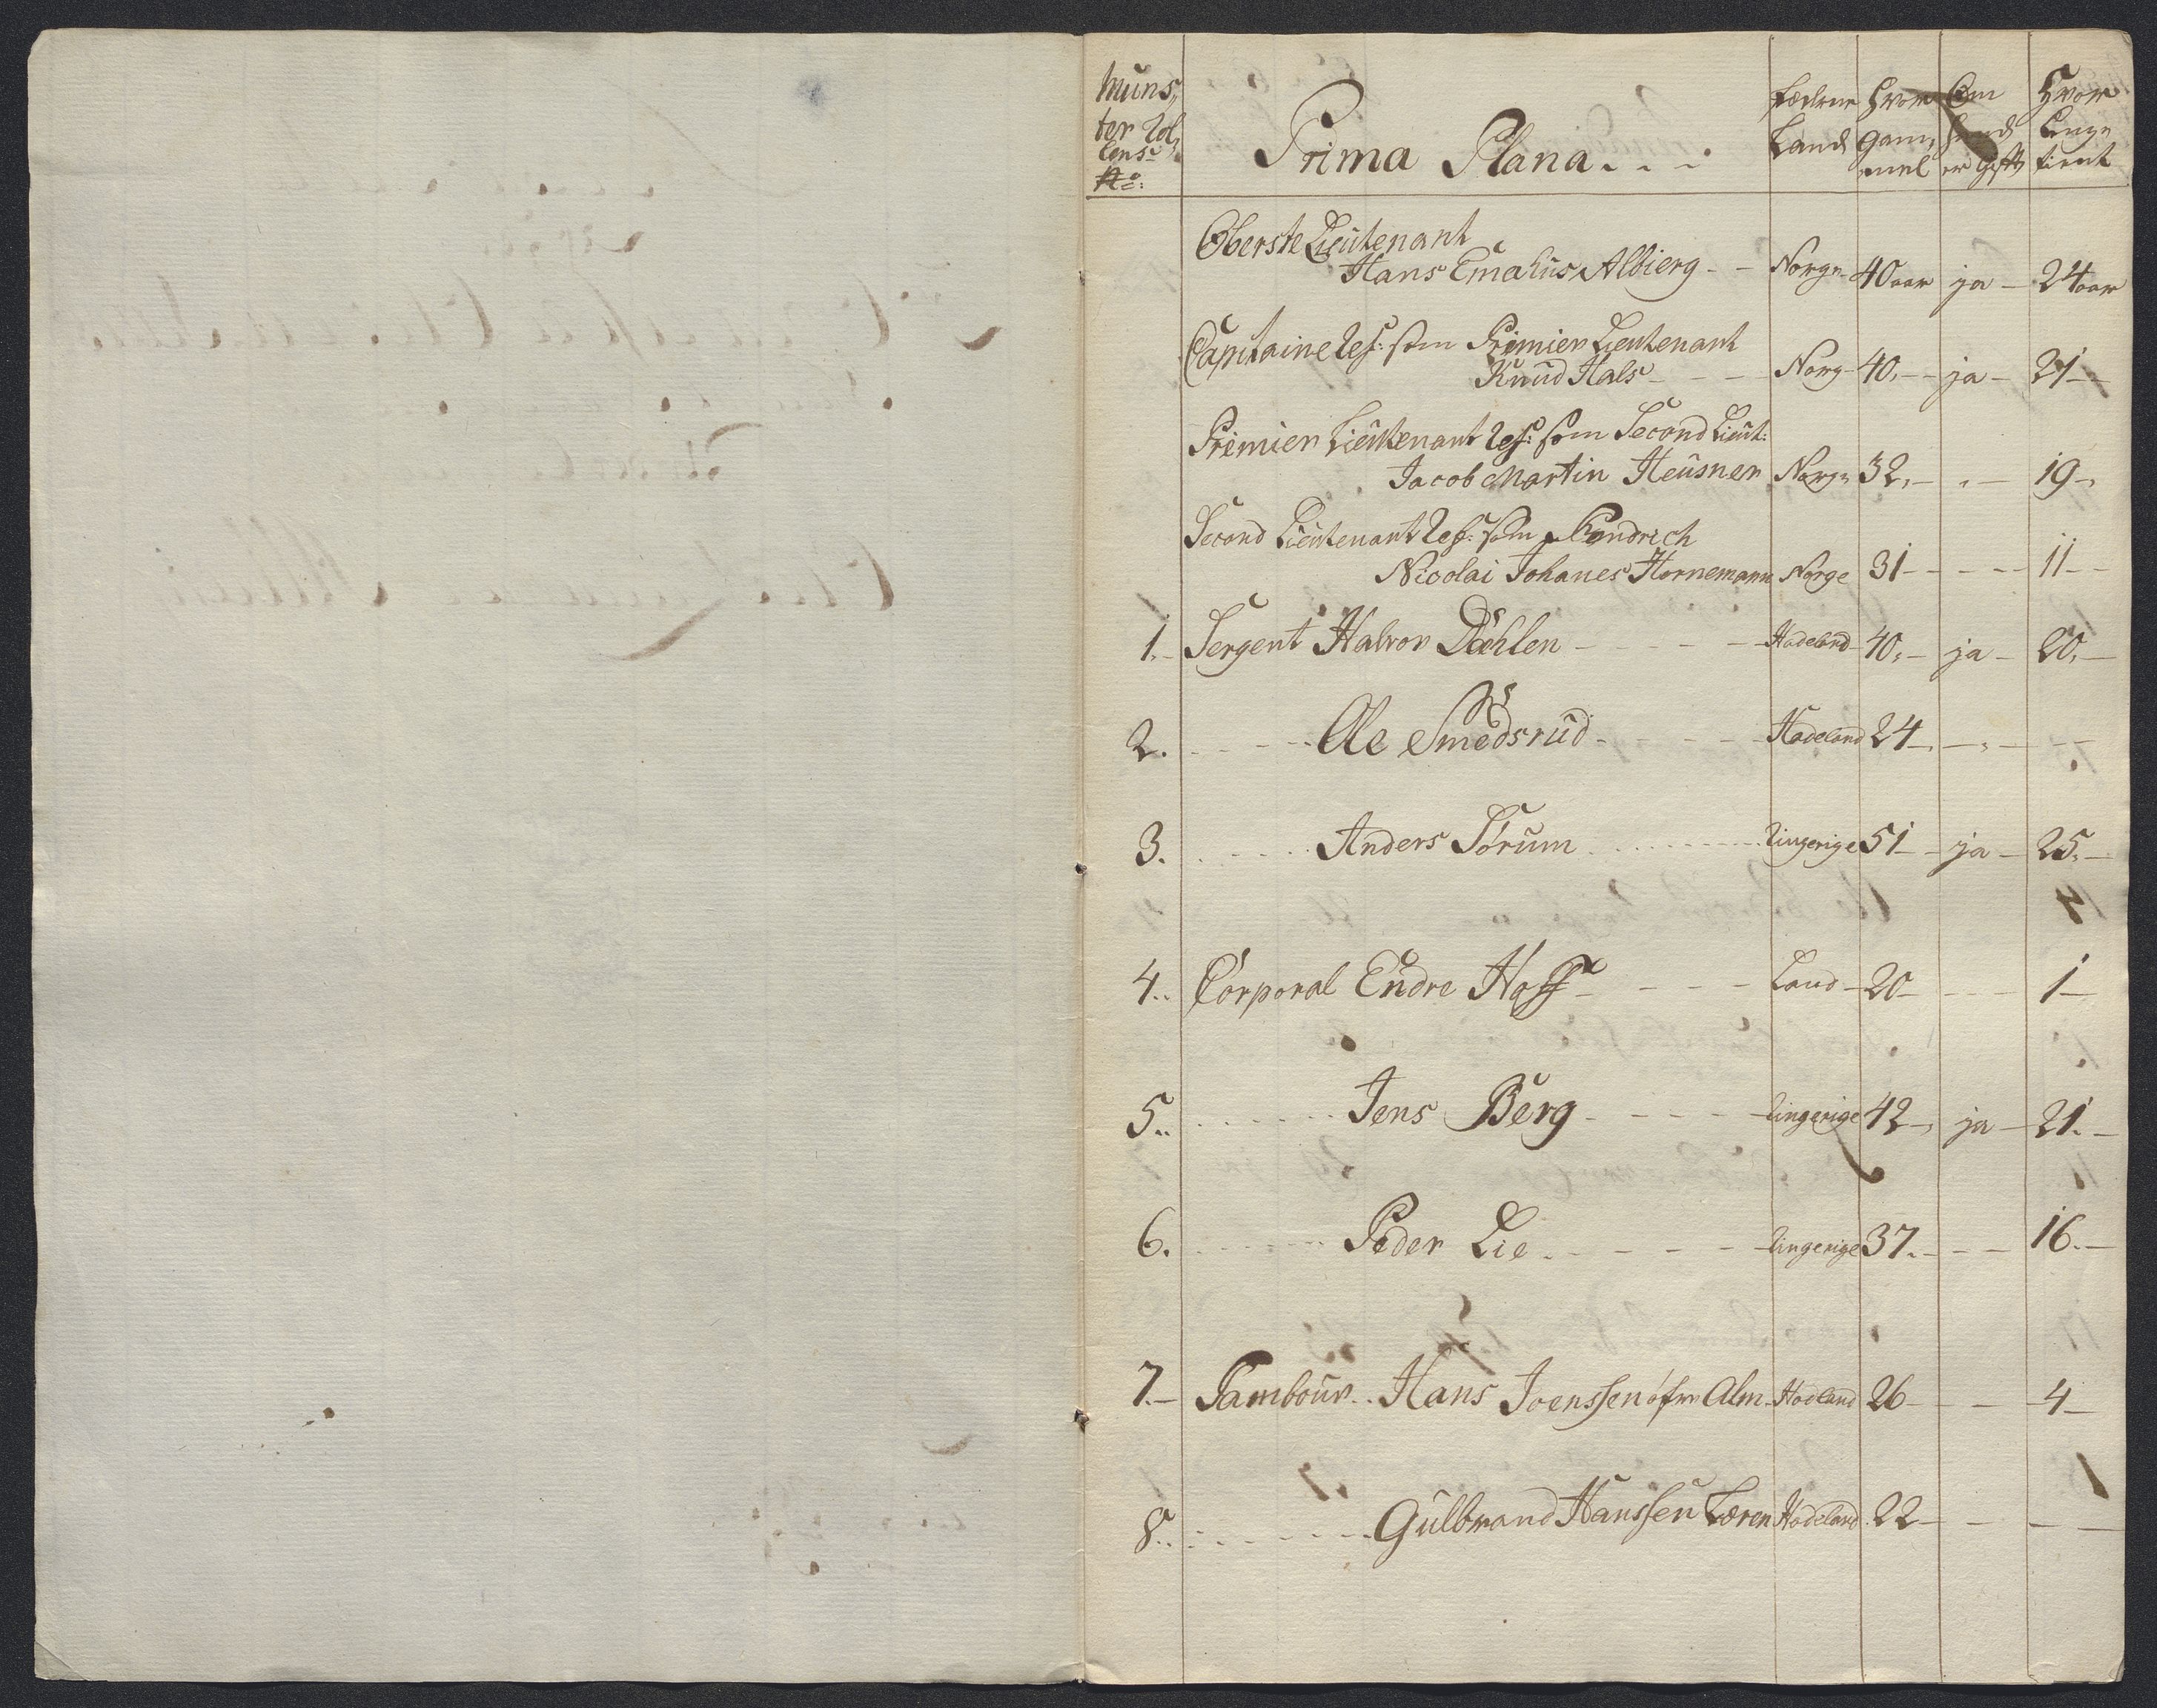 Muns,,
ter Rol,,
lens
No:
Prima Plana
Fæderne Land
Hvor Gam,, mel
Om hand er Gift
Hvor Lenge tient
Oberste Lieutenant
Hans Emahus Albierg - - Norge 40 aar ja - 24 aar
Capitaine Ref: som Premier Lieutenant
Knud Hals - - - Norg- 40,- - ja - 21 - -
Premier Lieutenant Ref: som Second Lieut:
Jacob Martin Heusner Norge 32,- - - 19 -,
Second Lieutenant Ref: som Fendrich
Nicolai Johanes Hornemann Norge 31 - - - - 11 - -
1. Sergent Halvor Dæhlen - - - - - Hadeland 40,- ja - 20,-
2. - - - - Ole Smedsrud - - - - - Hadeland 24 -, - , - - -
3. - - - - Anders Sørum - - - - Ringerige 51 - - ja - 25,-
4. Corporal Endre Hoff - - - - Land - 20 - - - - 1 -
5. - - - - Jens Berg - - - - Ringerige 42 -, ja - 21. -
6. - - - - Peder Lie - - - - - Ringerige 37. - - - 16. -
7. Tambour. Hans Joenssen øfre Alm - Hadeland 26 - - - 4 -
8. - - - - Gulbrand Hanssen Læren Hadeland 22 - - - -